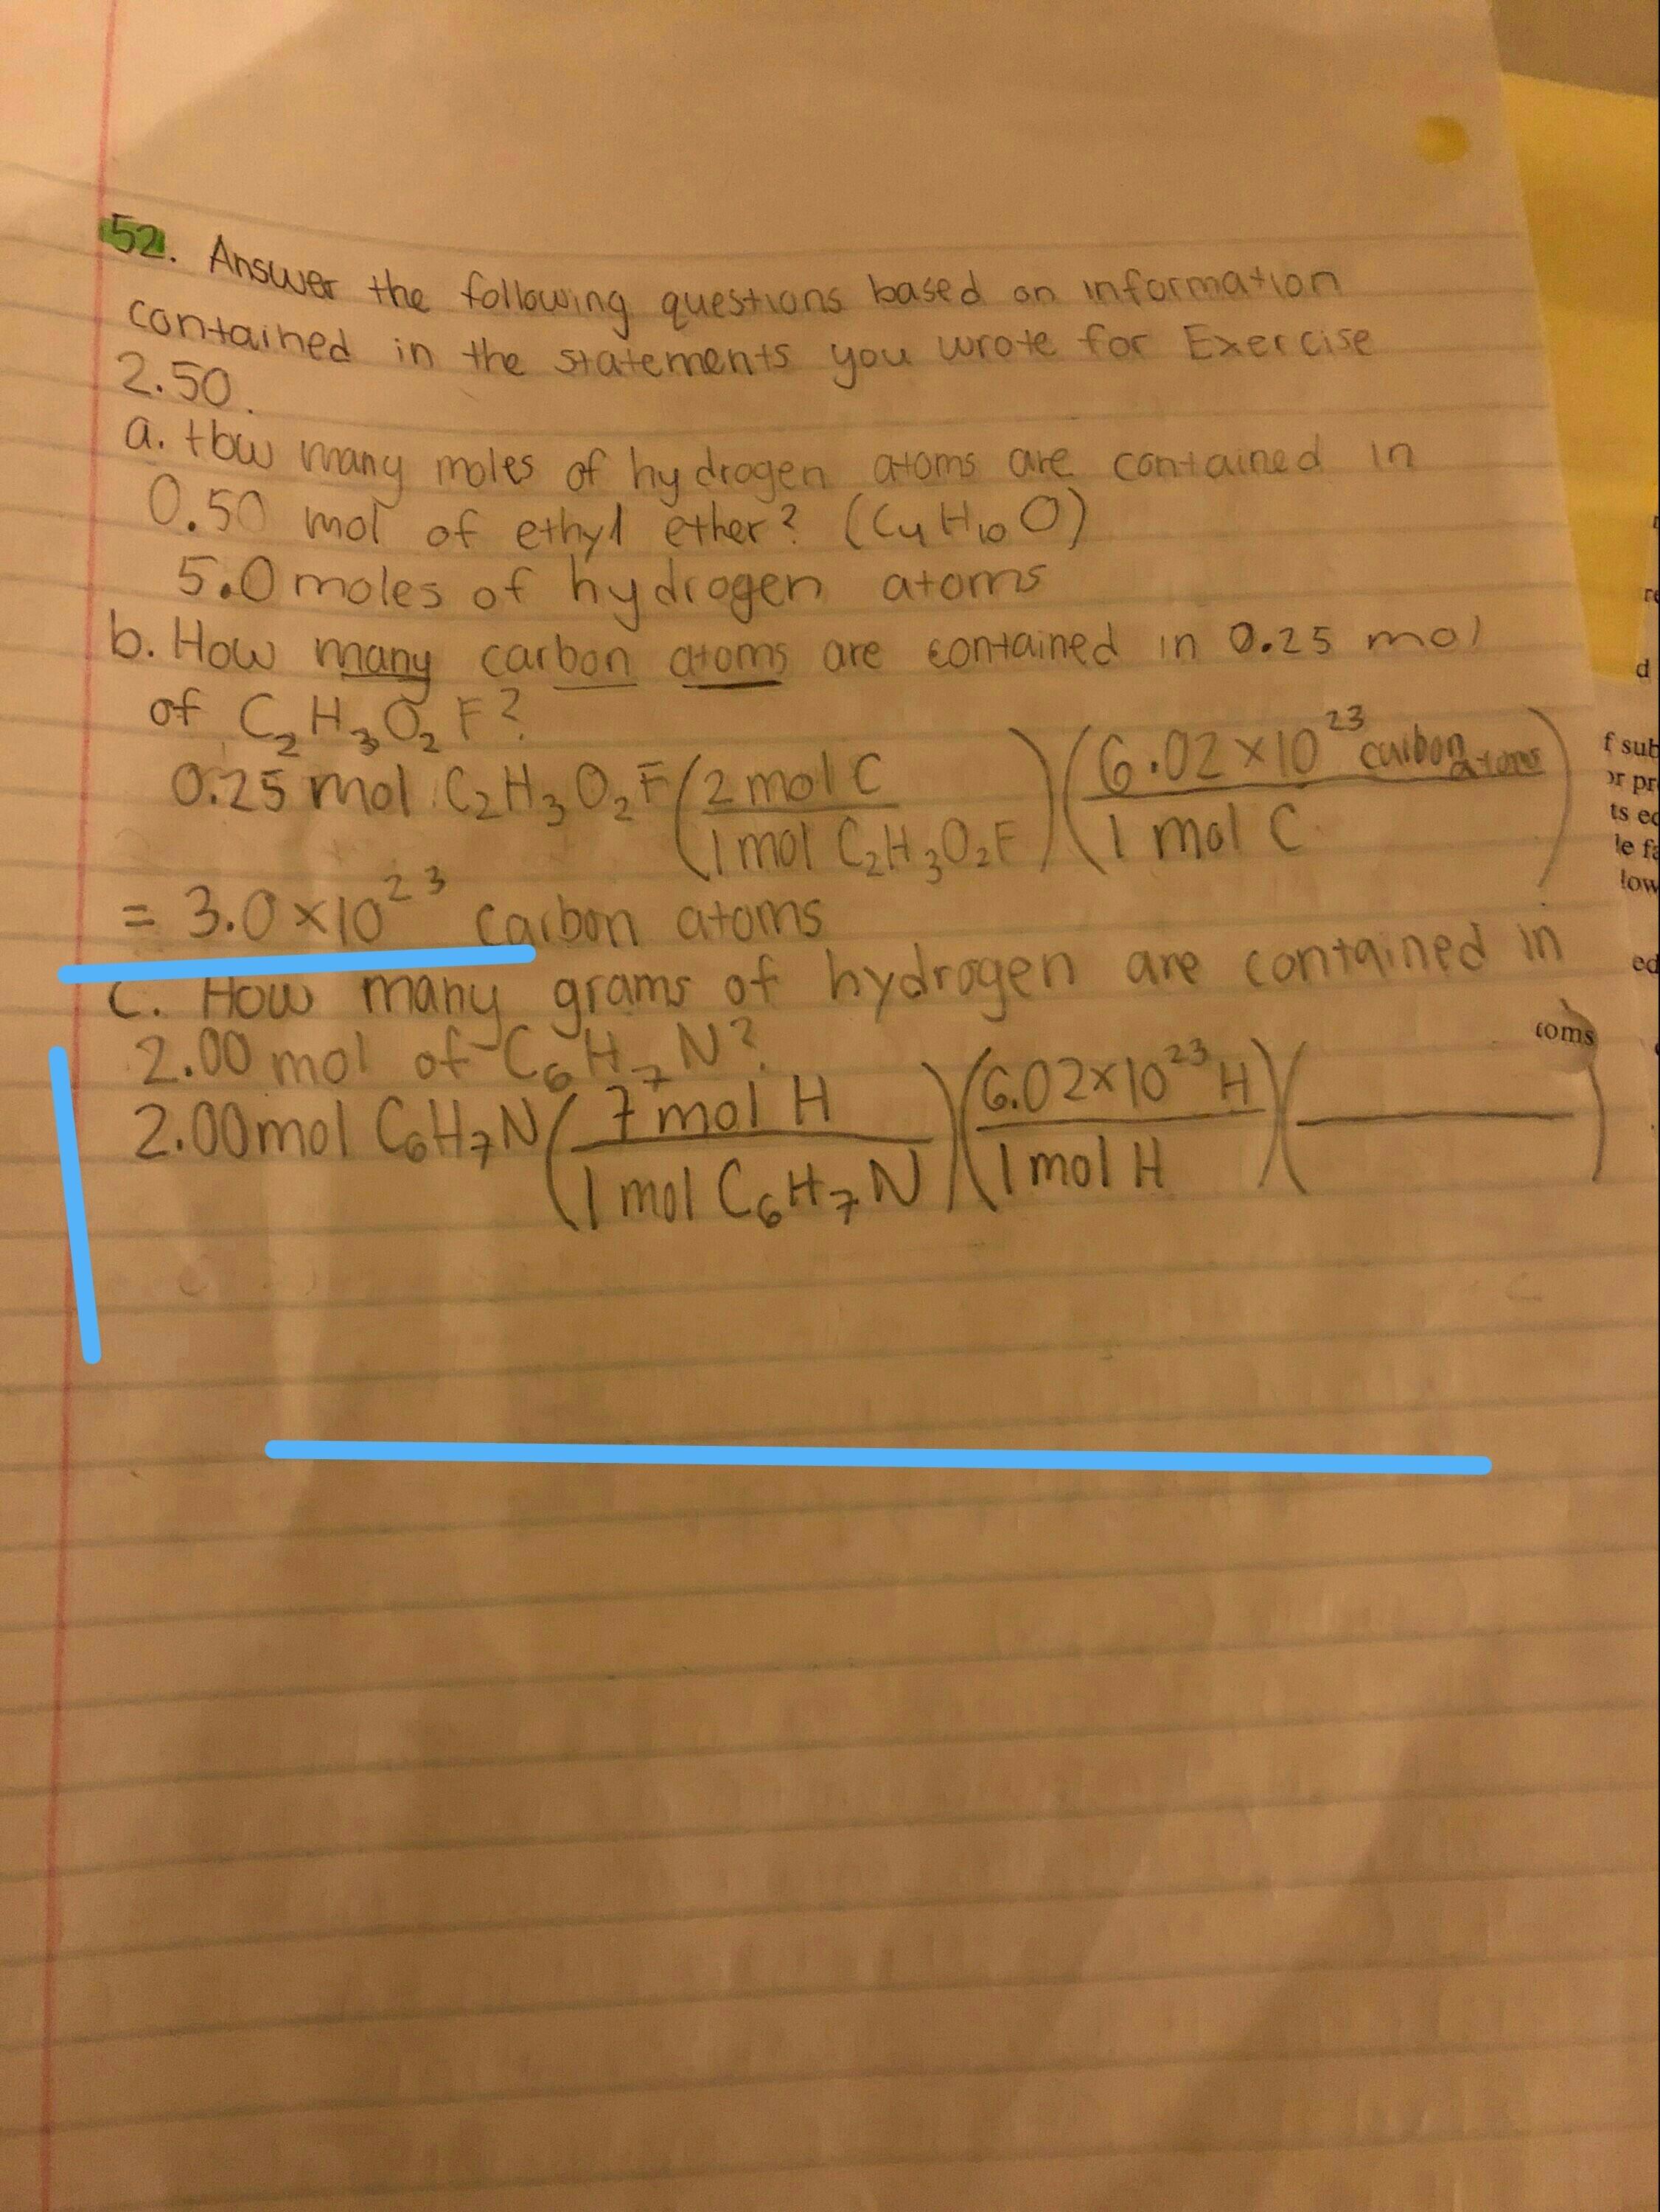 52. Answer the following questions based on information
contained in the statements you wrote for Exercise
2.50.
a. How many moles of hydrogen atoms are contained in
0.50 mol of ethyl ether? (C₄H₁₀O)
5.0 moles of hydrogen atoms
b. How many carbon atoms are contained in 0.25 mol
of C₂H₃O₂F?
0.25 mol C₂H₃O₂F (2 mol C / 1 mol C₂H₃O₂F) (6.02×10²³ carbon atoms / 1 mol C)
= 3.0×10²³ carbon atoms
c. How many grams of hydrogen are contained in
2.00 mol of C₆H₇N?
2.00 mol C₆H₇N (7 mol H / 1 mol C₆H₇N) (6.02×10²³ H / 1 mol H) ( / )
d
f sub
or pr
ts ec
le fa
low
ed
toms